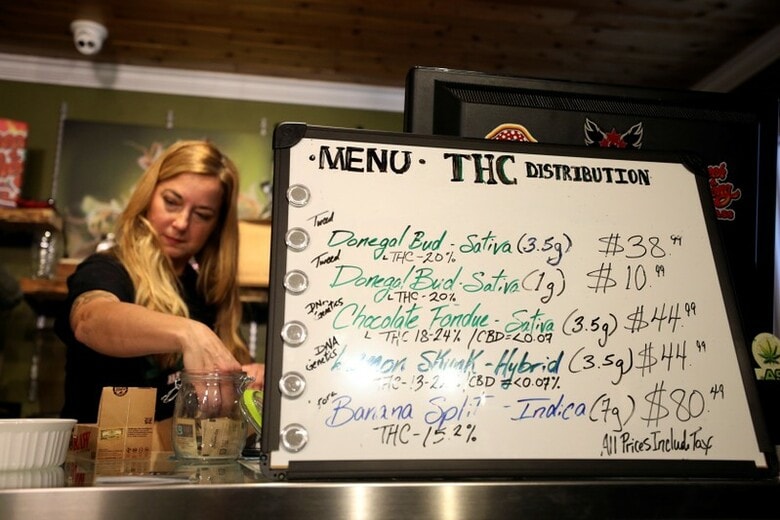 ·MENU· THC DISTRIBUTION
Tweed
Donegal Bud - Sativa (3.5g) $38.99
└THC-20%
Tweed
Donegal Bud-Sativa (1g) $10.99
└THC-20%
DNA Genetics
Chocolate Fondue - Sativa (3.5g) $44.99
└ THC 18-24% / CBD <0.07
DNA Genetics
Lemon Skunk - Hybrid (3.5g) $44.99
CBD <0.07%
Banana Split - Indica (7g) $80.49
THC-15.2%
All Prices Includ Tax